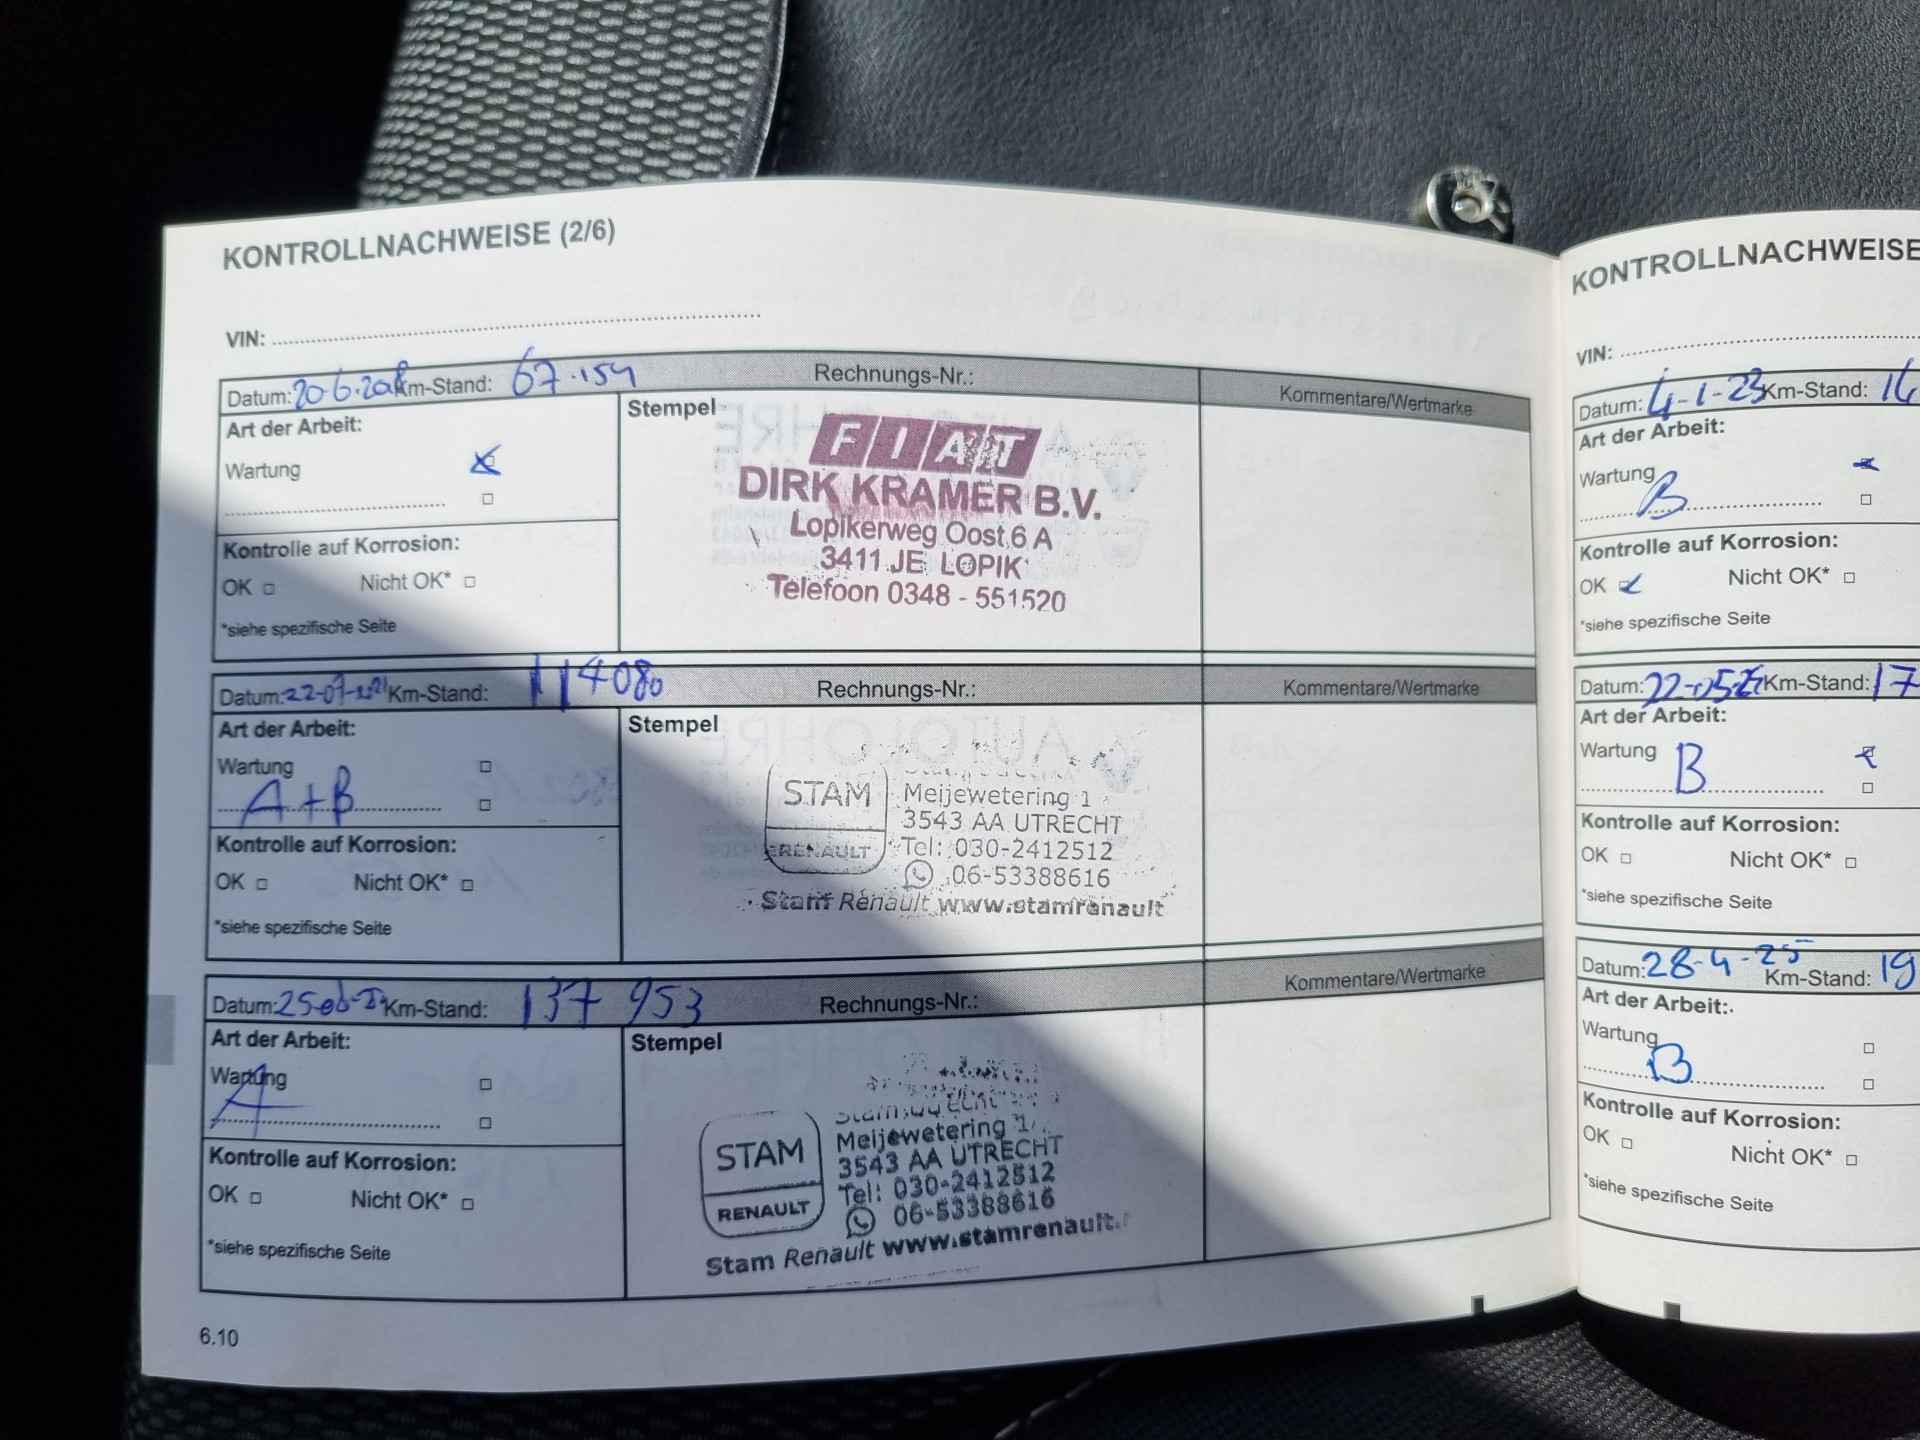 KONTROLLNACHWEISE (2/6)
VIN:
Datum: 20-6-2018 Km-Stand: 67.154 Rechnungs-Nr.: Kommentare/Wertmarke
Art der Arbeit:
Wartung
Kontrolle auf Korrosion:
OK Nicht OK*
*siehe spezifische Seite
Stempel
FIAT
DIRK KRAMER B.V.
Lopikerweg Oost 6 A
3411 JE LOPIK
Telefoon 0348 - 551520
Datum: 22-07-2021 Km-Stand: 114080 Rechnungs-Nr.: Kommentare/Wertmarke
Art der Arbeit:
Wartung
A+B
Kontrolle auf Korrosion:
OK Nicht OK*
*siehe spezifische Seite
Stempel
STAM
RENAULT
Meijewetering 1
3543 AA UTRECHT
Tel: 030-2412512
06-53388616
Stam Renault www.stamrenault
Datum: Km-Stand: 137 953 Rechnungs-Nr.: Kommentare/Wertmarke
Art der Arbeit:
Wartung
A
Kontrolle auf Korrosion:
OK Nicht OK*
*siehe spezifische Seite
Stempel
STAM
RENAULT
Meijewetering 1
3543 AA UTRECHT
Tel: 030-2412512
06-53388616
Stam Renault www.stamrenault.
6.10
KONTROLLNACHWEISE
VIN:
Datum: 4-1-23 Km-Stand: 14
Art der Arbeit:
Wartung
B
Kontrolle auf Korrosion:
OK Nicht OK*
*siehe spezifische Seite
Datum: Km-Stand: 17
Art der Arbeit:
Wartung
B
Kontrolle auf Korrosion:
OK Nicht OK*
*siehe spezifische Seite
Datum: 28-4-25 Km-Stand: 19
Art der Arbeit:
Wartung
B
Kontrolle auf Korrosion:
OK Nicht OK*
*siehe spezifische Seite